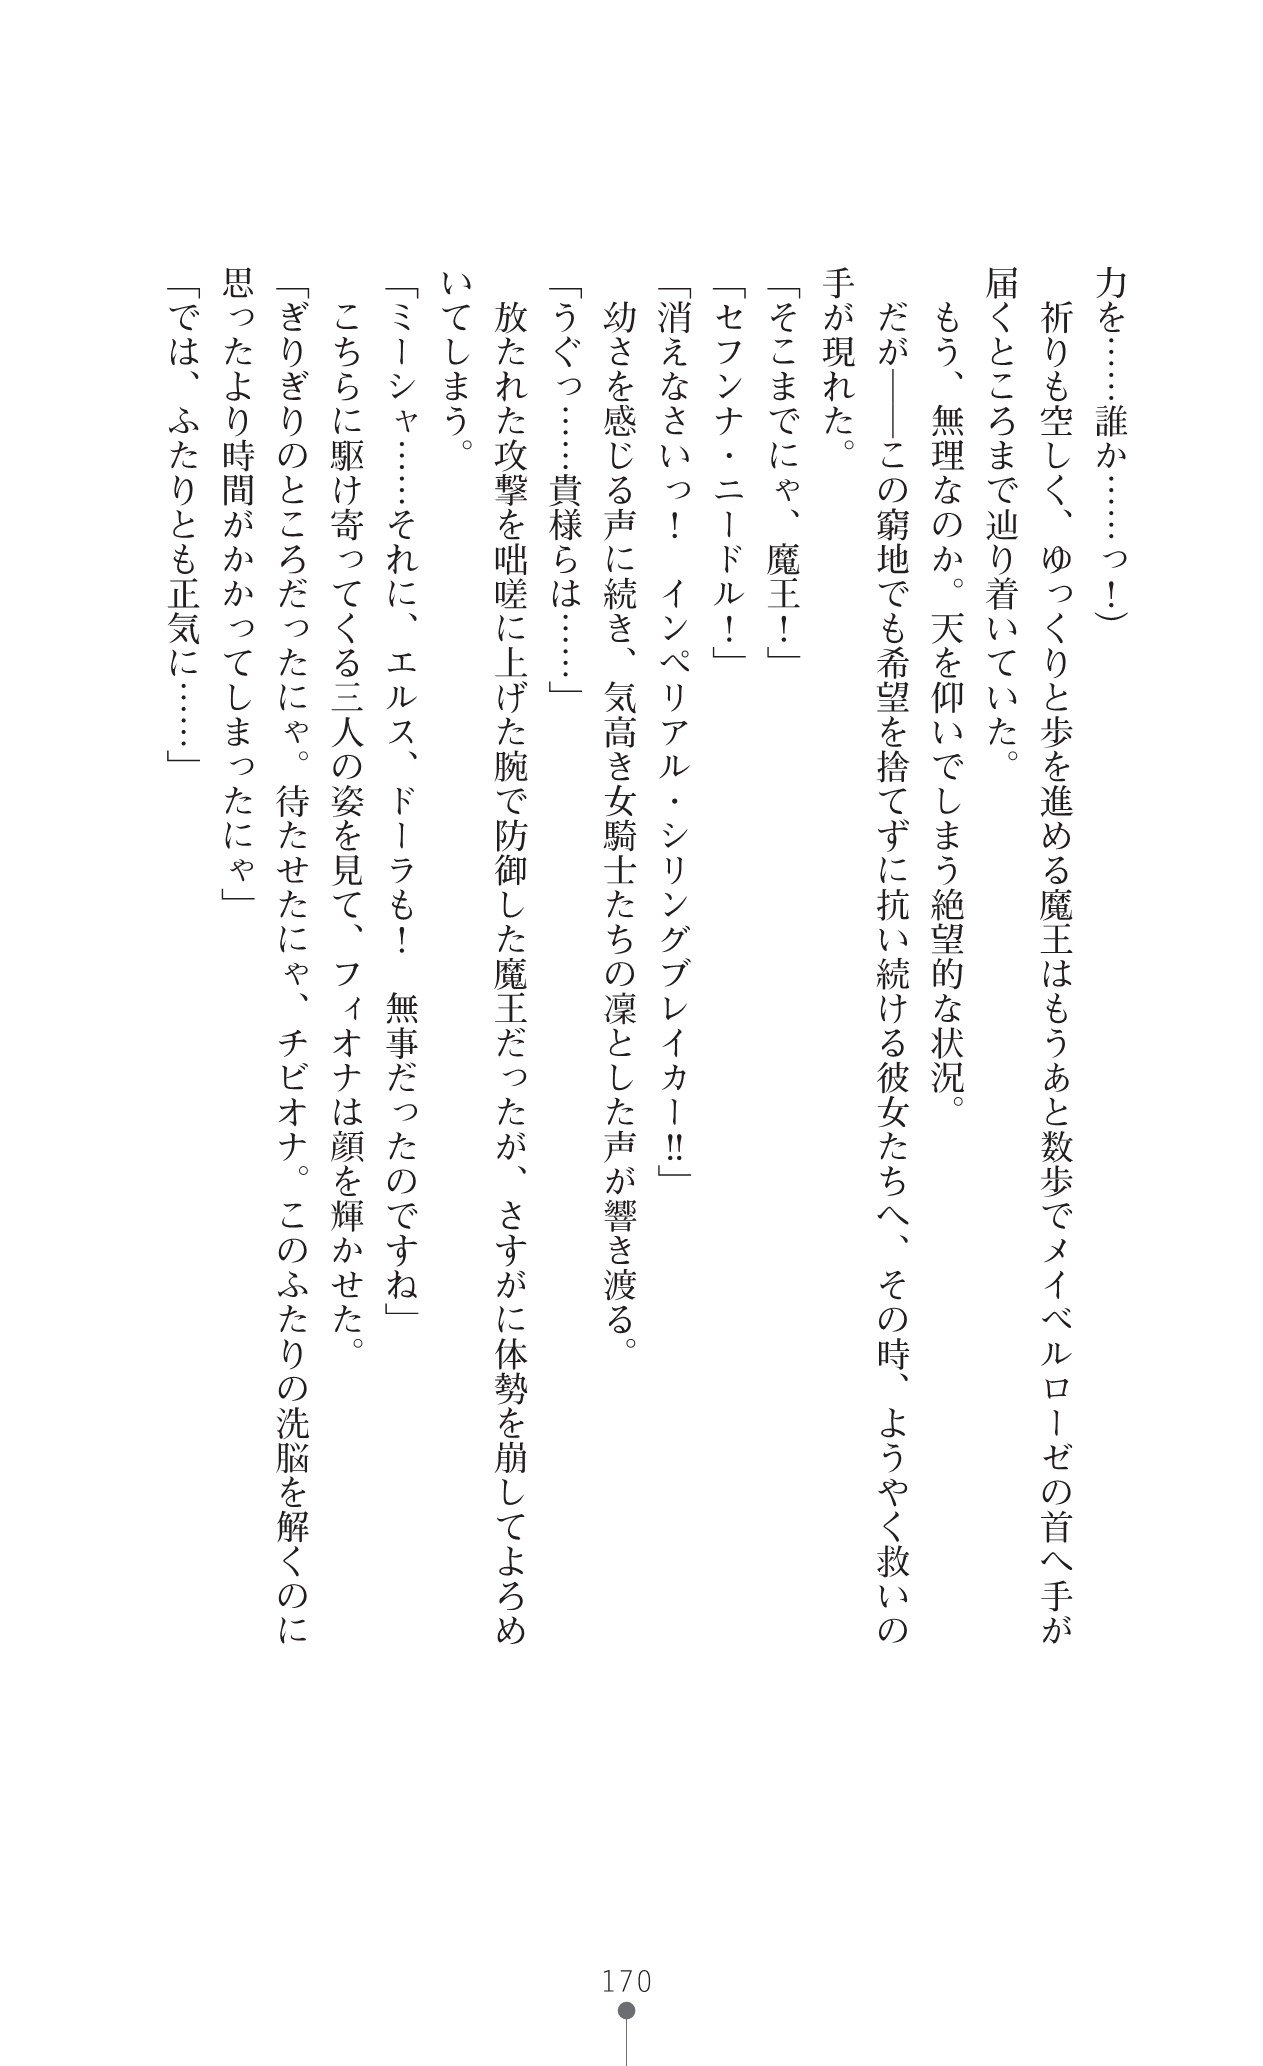 力を……誰か……っ！）
　祈りも空しく、ゆっくりと歩を進める魔王はもうあと数歩でメイベルローゼの首へ手が
届くところまで辿り着いていた。
　もう、無理なのか。天を仰いでしまう絶望的な状況。
　だが――この窮地でも希望を捨てずに抗い続ける彼女たちへ、その時、ようやく救いの
手が現れた。
「そこまでにゃ、魔王！」
「セフンナ・ニードル！」
「消えなさいっ！　インペリアル・シリングブレイカー‼」
　幼さを感じる声に続き、気高き女騎士たちの凜とした声が響き渡る。
「うぐっ……貴様らは……」
　放たれた攻撃を咄嗟に上げた腕で防御した魔王だったが、さすがに体勢を崩してよろめ
いてしまう。
「ミーシャ……それに、エルス、ドーラも！　無事だったのですね」
　こちらに駆け寄ってくる三人の姿を見て、フィオナは顔を輝かせた。
「ぎりぎりのところだったにゃ。待たせたにゃ、チビオナ。このふたりの洗脳を解くのに
思ったより時間がかかってしまったにゃ」
「では、ふたりとも正気に……」
170